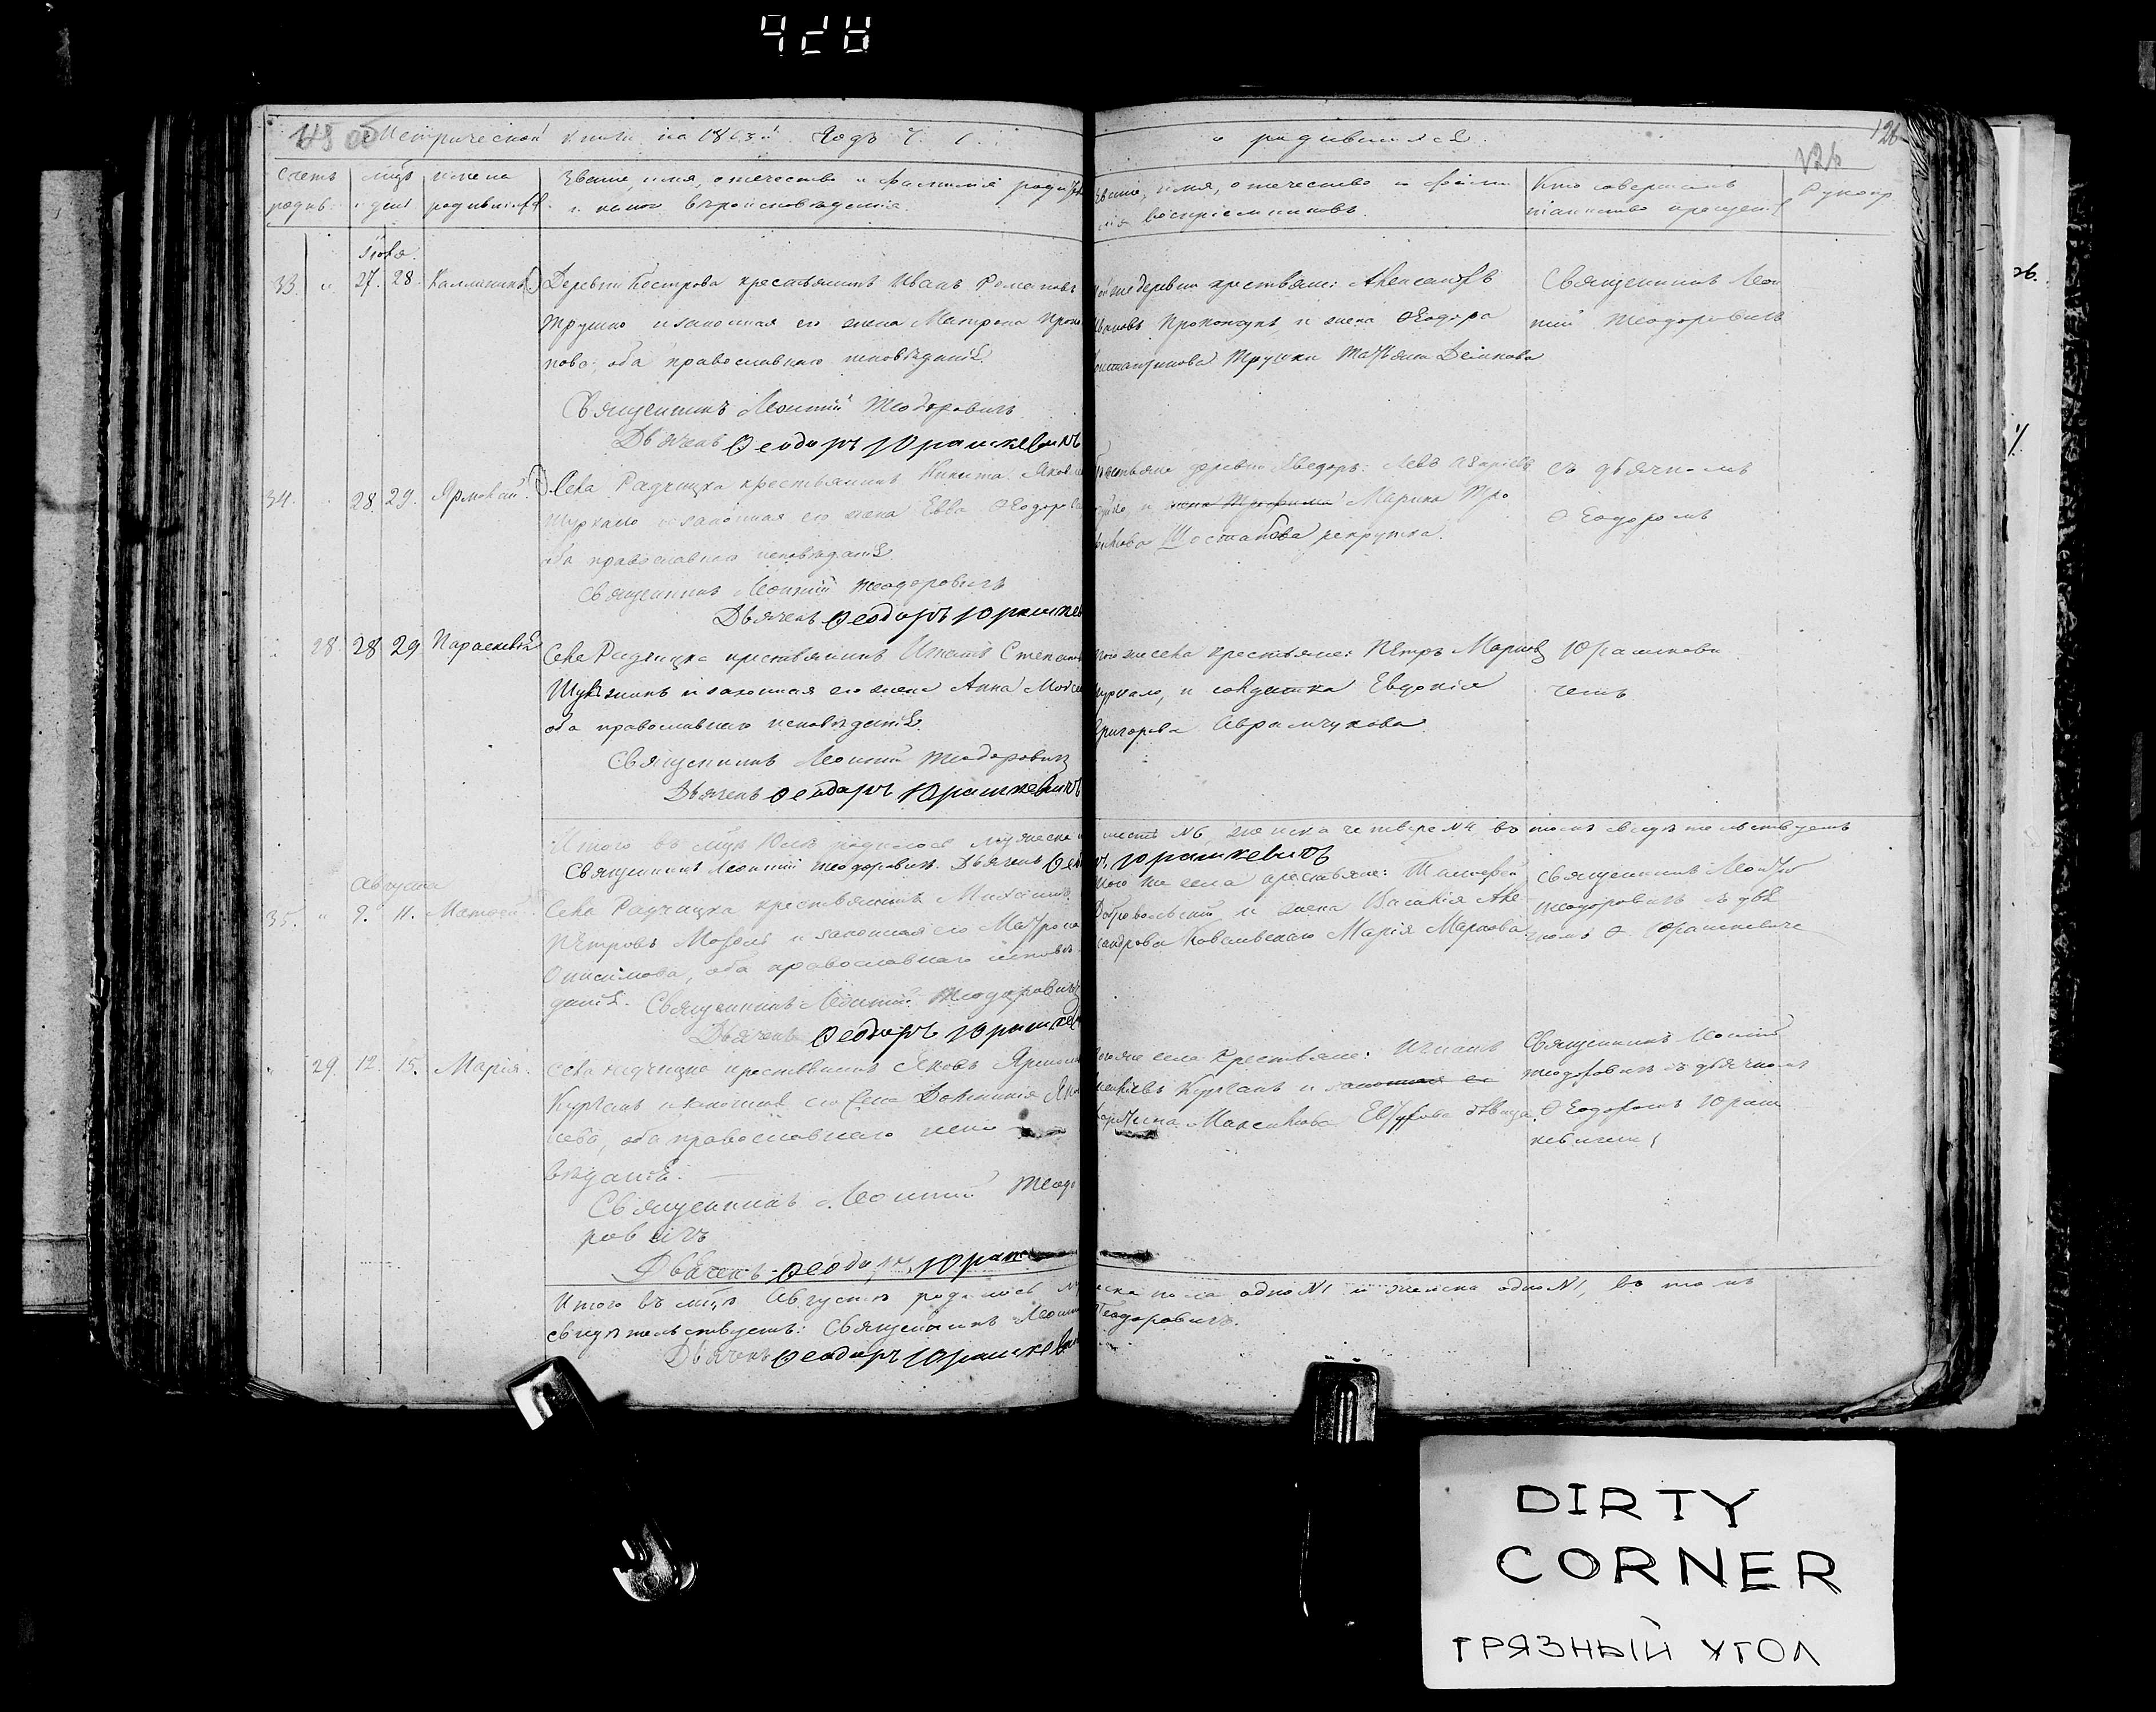 Метрической книги на 1863й Годъ Ч. 1.
о родившихся.
126
126
Счетъ родив.
мцъ и дни
имена родившихся
Званіе, имя, отечество и фамилія родителей
и какого вѣроисповѣданія.
Званіе, имя, отечество и фами
лія воспріемниковъ.
Кто совершалъ
таинство крещенія
Рукопр
Іюля.
33. 27. 28. Каллиникъ
Деревни Кострова крестьянинъ Иванъ Романовъ
Трушко и законная его жена Матрона Проко
пова, оба православнаго исповѣданія.
Священникъ Леонтий Теодоровичъ
Дьячекъ Ѳеодоръ Юрашкевичъ
той же деревни крестьяне: Александръ
Ивановъ и жена Ѳеодора
Константинова Трушки Татьяна
Священникъ Леон
тий Теодоровичъ
34. 28. 29. Ярмолай.
Села Радчицка крестьянинъ Никита Яковле
Шуркало и законная его жена Евва Ѳеодорова
оба православнаго исповѣданія.
Священникъ Леонтий Теодоровичъ
Дьячекъ Ѳеодоръ Юрашкев
Крестьяне деревни Хведоръ: Левъ
и Марина Тро
Шостакова рекрутка.
съ дьячкомъ
Ѳеодоромъ
28. 28 29 Параскевія
Села Радчицка крестьянинъ Игнатъ Степановъ
и законная его жена Анна Мойсе
оба православнаго исповѣданія.
Священникъ Леонтий Теодоровичъ
Дьячекъ Ѳеодоръ Юрашкевичъ
того же села крестьяне: Петръ Марковъ
Шуркало, и солдатка Евдокія
Григорева Абрамчукова
Юрашкеви
чемъ
Итого въ мцѣ Юлѣ родилось мужеска
шесть №6, женска четверо №4, въ томъ свидѣтельствуетъ
Священникъ Леонтий Теодоровичъ. Дьячекъ Ѳеодоръ Юрашкевичъ
Августа
35. 9. 11. Матфей.
Села Радчицка крестьянинъ Михаилъ
Петровъ Мозоль и законная его Матрона
Онисимова, оба православнаго исповѣ
данія. Священникъ Леонтий Теодоровичъ
Дьячекъ Ѳеодоръ Юрашкев
того же села крестьяне: Тимофей
Добровольский и жена Василія Але
ксандрова Ковалевскаго Марія Маркова
Священникъ Леонтій
Теодоровичъ съ дья
чкомъ Ѳ. Юрашкевиче
29. 12. 15. Марія.
Села Радчицка крестьянинъ Яковъ Ярмол
Курганъ и законная его жена Домникія Яко
лева, оба православнаго испо
вѣданія.
Священникъ Леонтий Теодо
ровичъ
Дьячекъ Ѳеодоръ Юраш
того же села крестьяне: Игнатъ
Курганъ и законная ее
Максимова дѣвица
Священникъ Леонтій
Теодоровичъ съ дьячкомъ
Ѳеодоромъ Юраш
кевичемъ
Итого въ мцѣ Августѣ родилось му
жеска пола одно №1 и женска одно №1, въ томъ
свидѣтельствуетъ: Священникъ Леонтий Теодоровичъ.
Дьячекъ Ѳеодоръ Юрашкевичъ
DIRTY
CORNER
ГРЯЗНЫЙ УГОЛ